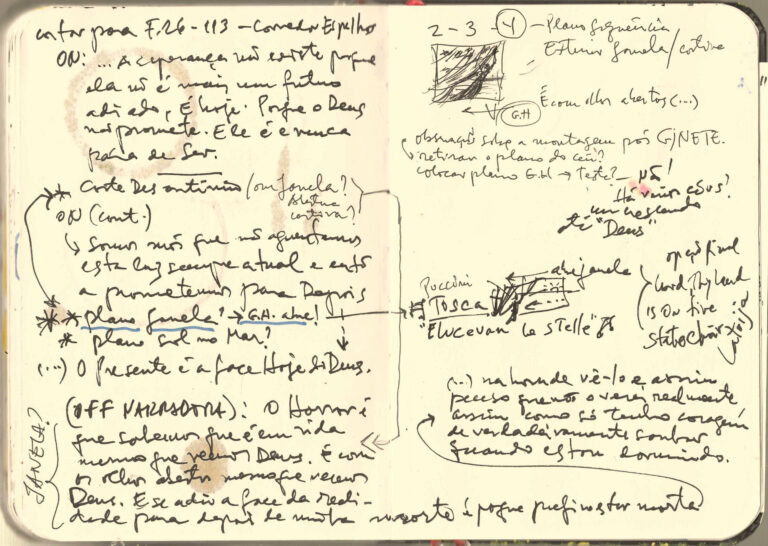 cortar para F.26-113 - Corredor Espelho
ON: ... A esperança não existe porque
ela não é mais um futuro
adiado, É hoje. Porque o Deus
não promete. Ele é e nunca
pára de Ser.
* Corte Descontínuo / ou Janela?
ON (cont.)
↳ Somos nós que não aguentamos
esta luz sempre atual e então
a prometemos para Depois
** plano janela? → G.H. abre!
* plano sol no Mar?
(...) O Presente é a face Hoje do Deus.
JANELA?
(OFF NARRADORA): O Horror é
que sabemos que é em vida
mesmo que vemos Deus. É com
os olhos abertos mesmo que vemos
Deus. E se adio a face da reali-
dade para depois de minha morte é porque prefiro estar morta
2 - 3 - 4 - Plano sequência
Exterior Janela / cortina
G.H
É com olhos abertos (...)
observação sobre a montagem pós GINETE.
retornar o plano do céu?
colocar plano G.H → Testa? - Não!
Há vários céus?
um crescendo
até "Deus"
Puccini
Tosca
"E lucevan le stelle"
abre janela
opção final
is On fire
(...) na hora de vê-lo e assim
penso que não o verei realmente
assim como só tenho coragem
de verdadeiramente sonhar
quando estou dormindo.